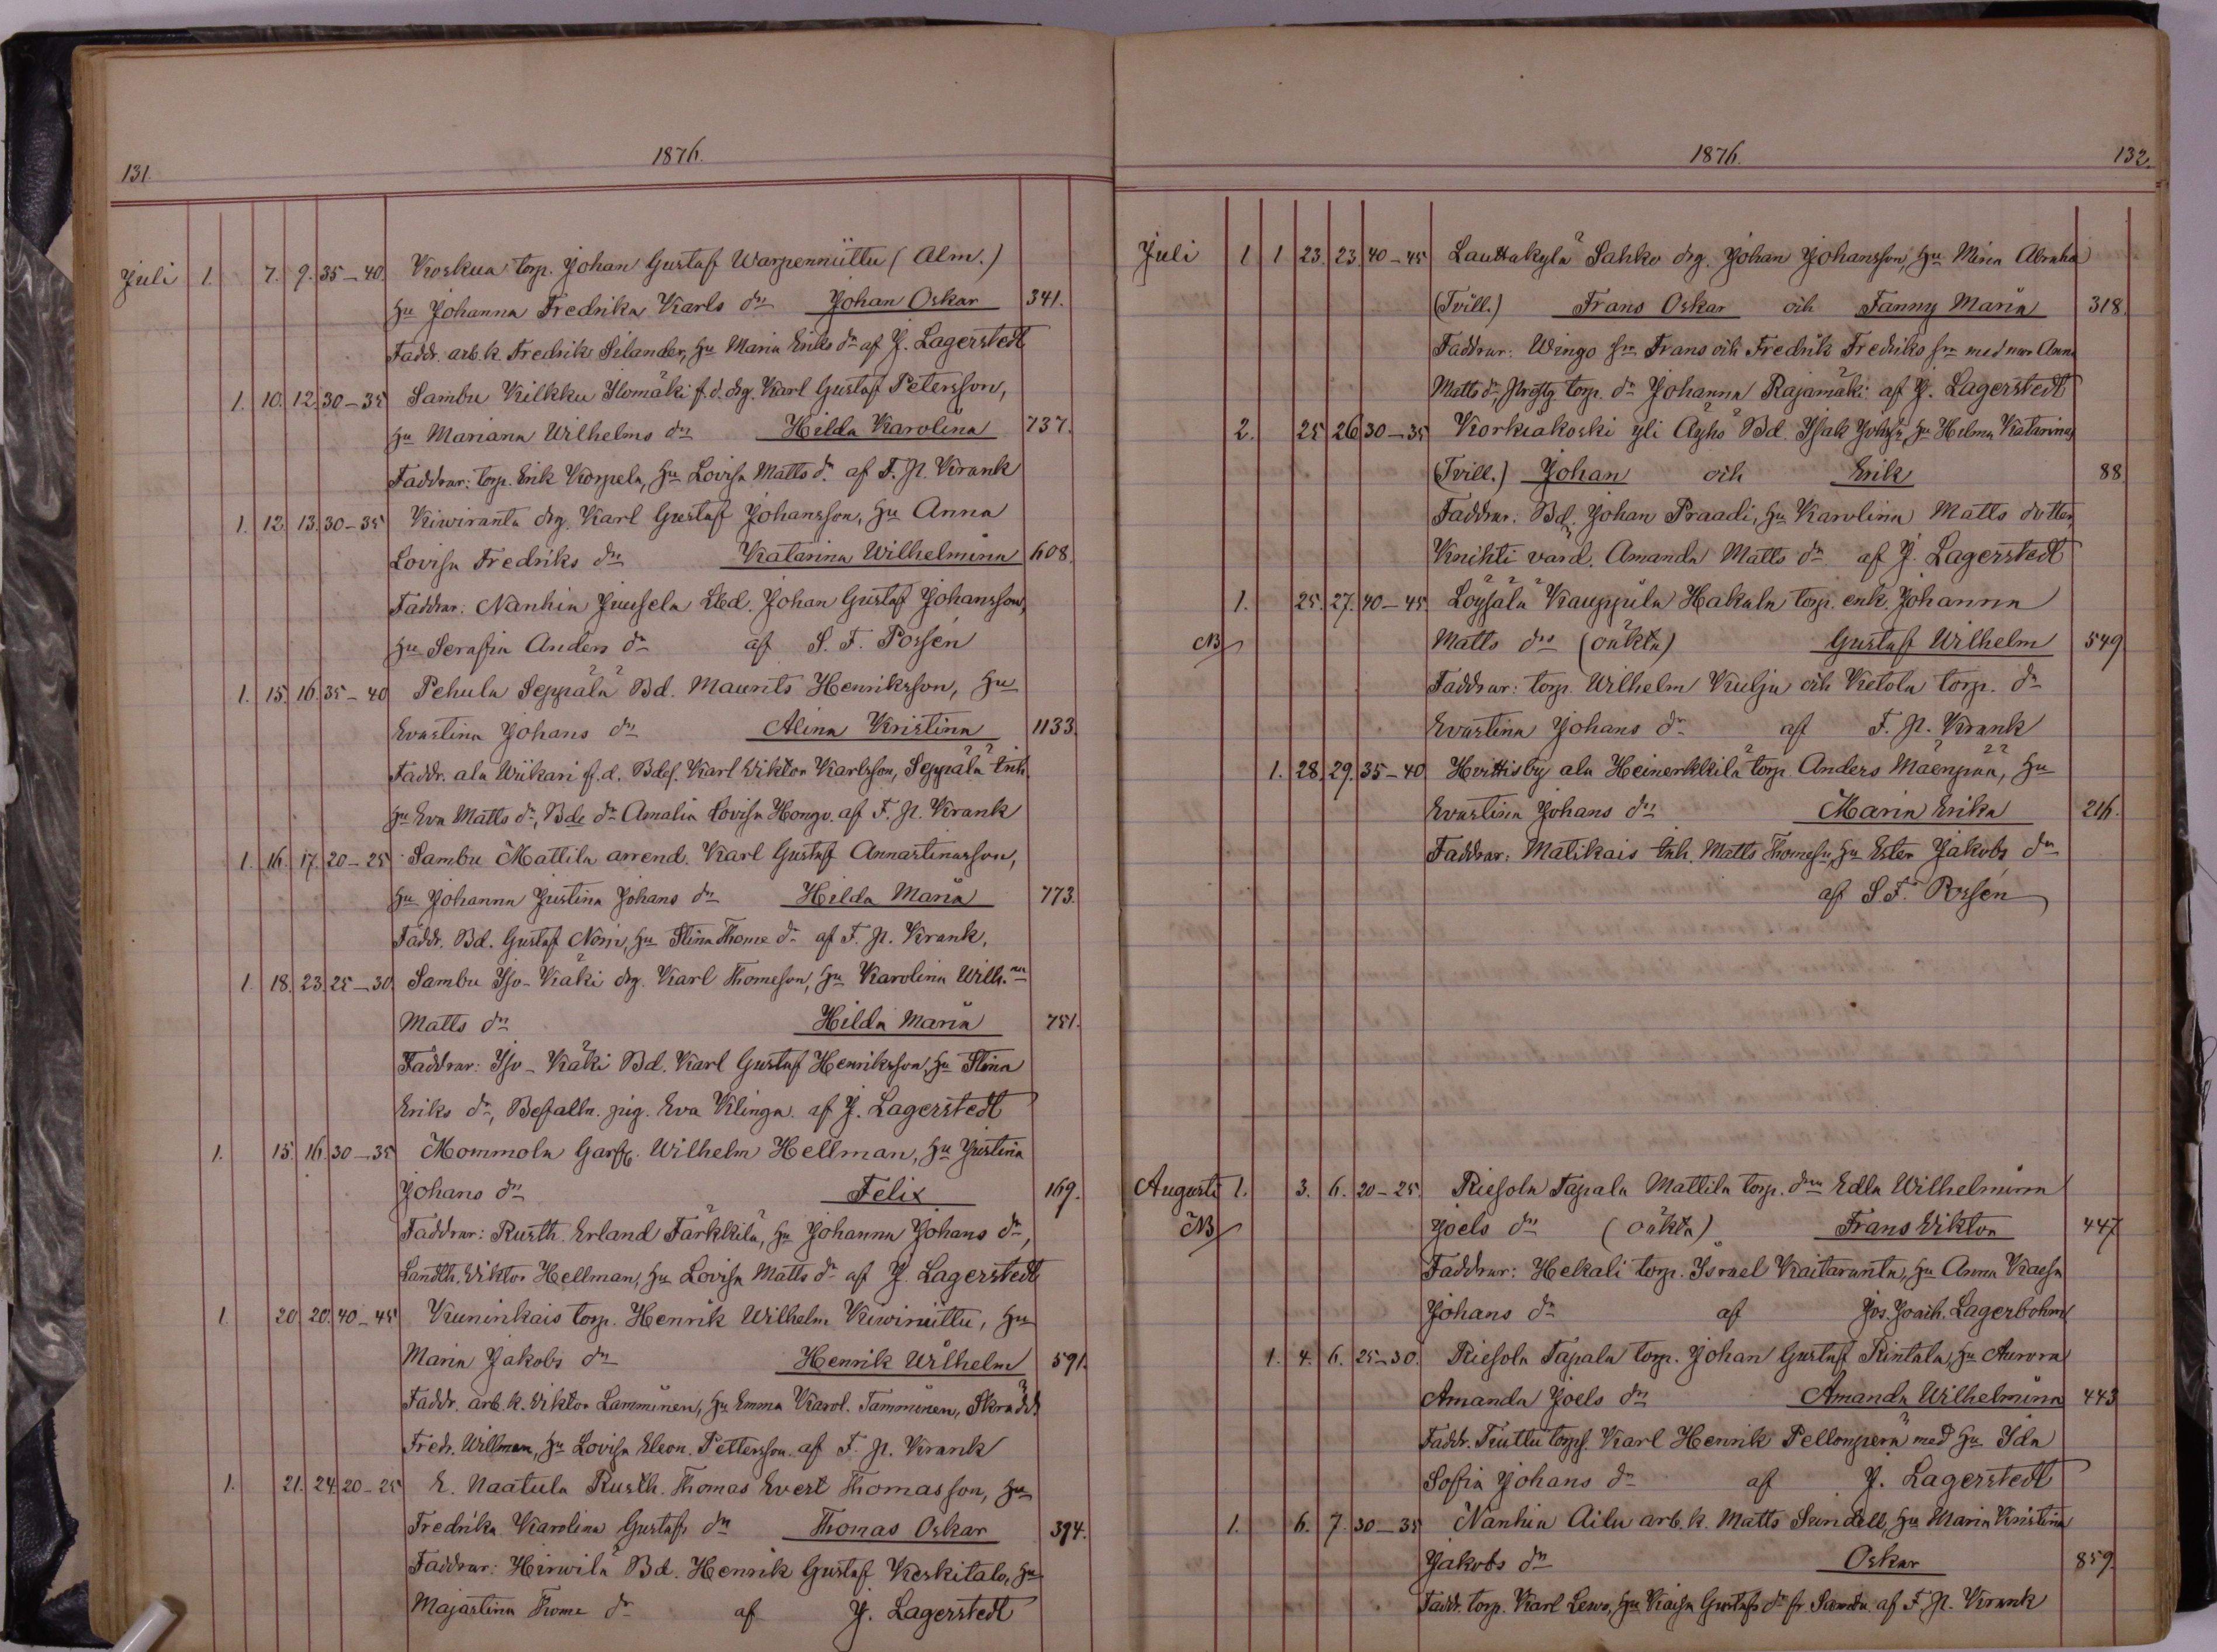 131. 1876.
Juli 1. 7. 9. 35-40 Koskua torp. Johan Gustaf Warpenniittu (Alm.)
hu Johanna Fredrika Karls dr Johan Oskar 341.
Faddr. arb.k. Fredrik Silander, hu Maria Eriks dr af J. Lagerstedt
1. 10. 12. 30-35 Sambu Kilkku Ilomäki f.d. drg. Karl Gustaf Petersson,
hu Mariana Wilhelms dr Hilda Karolina 737.
Faddrar: torp. Erik Korpela, hu Lovisa Matts dr af F. N. Krank
1. 12. 13. 30-35 Kiwiranta drg. Karl Gustaf Johansson, hu Anna
Lovisa Fredriks dr Katarina Wilhelmina 608.
Faddrar: Nanhia Juusela Lbd. Johan Gustaf Johansson,
hu Serafia Anders dr af S. F. Porsén
1. 15. 16. 35-40 Pehula Seppälä Bd. Maurits Henriksson, hu
Evastina Johans dr Alina Kristina 1133.
Faddr. ala Wiikari f.d. Bdes. Karl Viktor Karlsson, Seppälä inh.
hu Eva Matts dr, Bde dr Amalia Lovisa Hongo af F. N. Krank
1. 16. 17. 20-25 Sambu Mattila arrend. Karl Gustaf Annastinasson,
hu Johanna Justina Johans dr Hilda Maria 773.
Faddr. Bd. Gustaf Nori, hu Stina Thome dr af F. N. Krank.
1. 18. 23. 25-30 Sambu Iso-Käki drg. Karl Thomeson, hu Karolina Wilh.
Matts dr Hilda Maria 751.
Faddrar: Iso-Käki Bd. Karl Gustaf Henriksson, hu Stina
Eriks dr, Befalln. pig. Eva Klinga af J. Lagerstedt
1. 15. 16. 30-35 Mommola Garfv. Wilhelm Hellman, hu Justina
Johans dr Felix 169.
Faddrar: Rusth. Erland Färkkilä, hu Johanna Johans dr,
Landth. Viktor Hellman, hu Lovisa Matts dr af J. Lagerstedt
1. 20. 20. 40-45 Kuninkais torp. Henrik Wilhelm Kiwiniittu, hu
Maria Jakobs dr Henrik Wilhelm 591.
Faddr. arb.k. Viktor Lamminen, hu Emma Karol. Tamminen, Skrädd.
Fredr. Willman, hu Lovisa Eleon. Pettersson af F. N. Krank
1. 21. 24. 20-25 E. Naatula Rusth. Thomas Evert Thomasson, hu
Fredrika Karolina Gustafs dr Thomas Oskar 394.
Faddrar: Hirwilä Bd. Henrik Gustaf Keskitalo, hu
Majastina Thome dr af J. Lagerstedt
1876. 132.
Juli 1 1 23. 23. 40-45 Lauttakylä Sahko drg. Johan Johansson, hu Maria Abraha
(Tvill.) Frans Oskar och Fanny Maria 318.
Faddrar: Wingo sn Frans och Fredrik Fredriks sn med mor Anna
Matts dr, torp. dr Johanna Rajamäki af J. Lagerstedt
2. 25 26 30-35 Korkiakoski yli Äyhö Bd. Isak Johss, hu Helena Katarina
(Tvill.) Johan och Erik 88
Faddrar: Bd. Johan Praadi, hu Karolina Matts dotter,
Knihti värd. Amanda Matts dr af J. Lagerstedt
1. 25. 27. 40-45 Löysälä Kauppila Hakala torp. enk. Johanna
NB Matts dr (oäkta) Gustaf Wilhelm 549
Faddrar: torp. Wilhelm Kulju och Ketola torp. dr
Evastina Johans dr af F. N. Krank
1. 28. 29. 35-40 Herttisby ala Heinerkkilä torp. Anders Mäenpää, hu
Evastina Johans dr Maria Erika 216.
Faddrar: Matikais inh. Matts Thomess, hu Ester Jakobs dr
af S. F. Porsén
Augusti 1. 3. 6. 20-25. Riesola Tapala Mattila torp. drn Edla Wilhelmina
NB Joels dr (oäkta) Frans Viktor 447
Faddrar: Hekali torp. Israel Kaitaranta, hu Anna Kaisa
Johans dr af Jos. Joach. Lagerbohm
1. 4. 6. 25-30. Riesola Tapala torp. Johan Gustaf Rintala, hu Aurora
Amanda Joels dr Amanda Wilhelmina 443
Faddr. Tuittu torps. Karl Henrik Pellonperä med hu Ida
Sofia Johans dr af J. Lagerstedt
1. 6. 7. 30-35 Nanhia Aila arb.k. Matts Sundell, hu Maria Kristina
Jakobs dr Oskar 859.
Faddr. torp. Karl Lewo, hu Kaisa Gustafs dr fr. af F. N. Krank